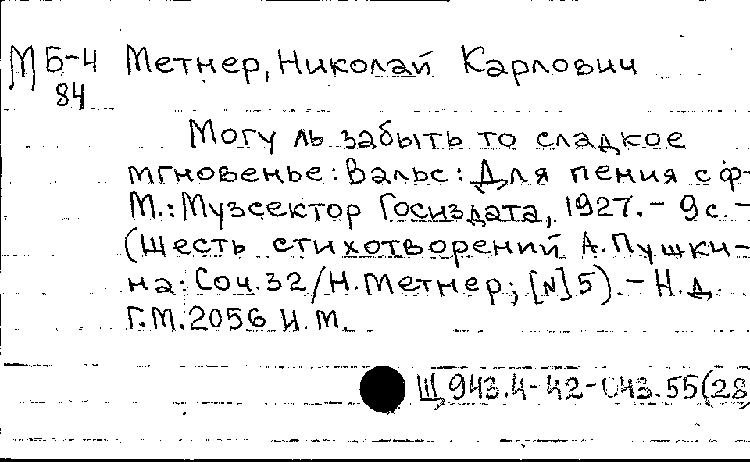 МБ-4 Метнер, Николай Карлович
84
Могу ль забыть то сладкое
мгновенье: Вальс: Для пения с ф-
М.: Музсектор Госиздата, 1927. - 9 с. -
(Шесть стихотворений А. Пушки-
на: Соч. 32 / Н. Метнер; [N] 5). - Н. д.
Г.М. 2056 И.М.
Щ 943.4-42-043.55(28)